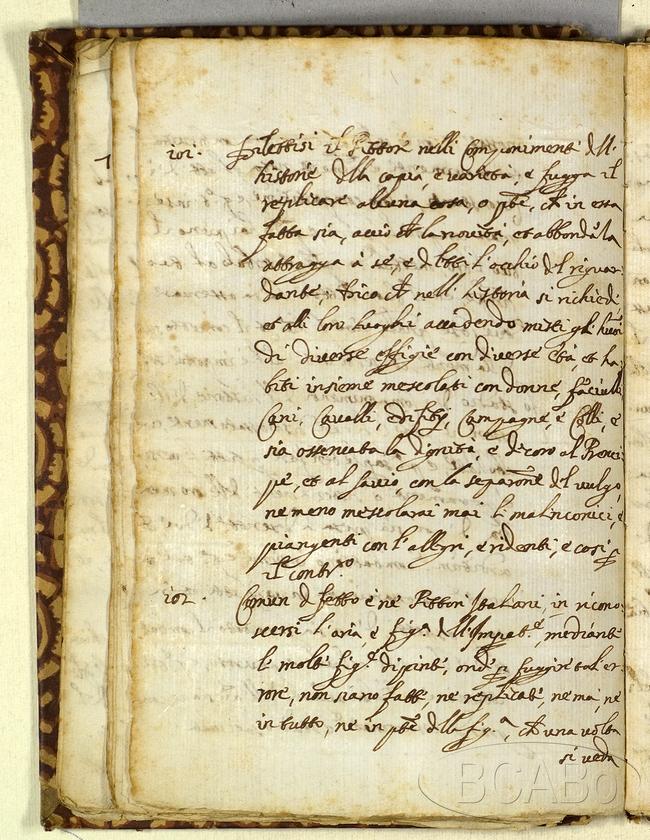 101. Dilettisi il Pittore nelli Componimenti dell'
historie della copia, e varietà, e fugga il
replicare alcuna cosa, o pte, ch in essa
fatta sia, acciò ch la novità, et abbonda la
attragga à se, e diletti l'occhio del riguar-
dante, dico ch nell'historia si richiede
et alli loro luoghi accadendo misti gli
di diverse effigie con diverse età, et ha-
biti insieme mescolati con donne, fanciulli
Cani, Cavalli, edifitij, Campagne, e Colli, e
sia osservata la dignità, e decoro al Prenci-
pe, et al savio, con la separone del vulgo,
ne meno mescolarai mai li malinconici, e
piangenti con l'allegri, e ridenti, e così p
il contr.ro
102. Comun difetto è ne Pittori Italiani, in ricono-
scersi l'aria, e fig.a dell' mediante
le molte fig.e dipinte, onde p fuggire tal er-
rore, non siano fatte, ne replicate, ne mai, ne
in tutto, ne in pte della fig.a, ch una volta
si veda
BCABo